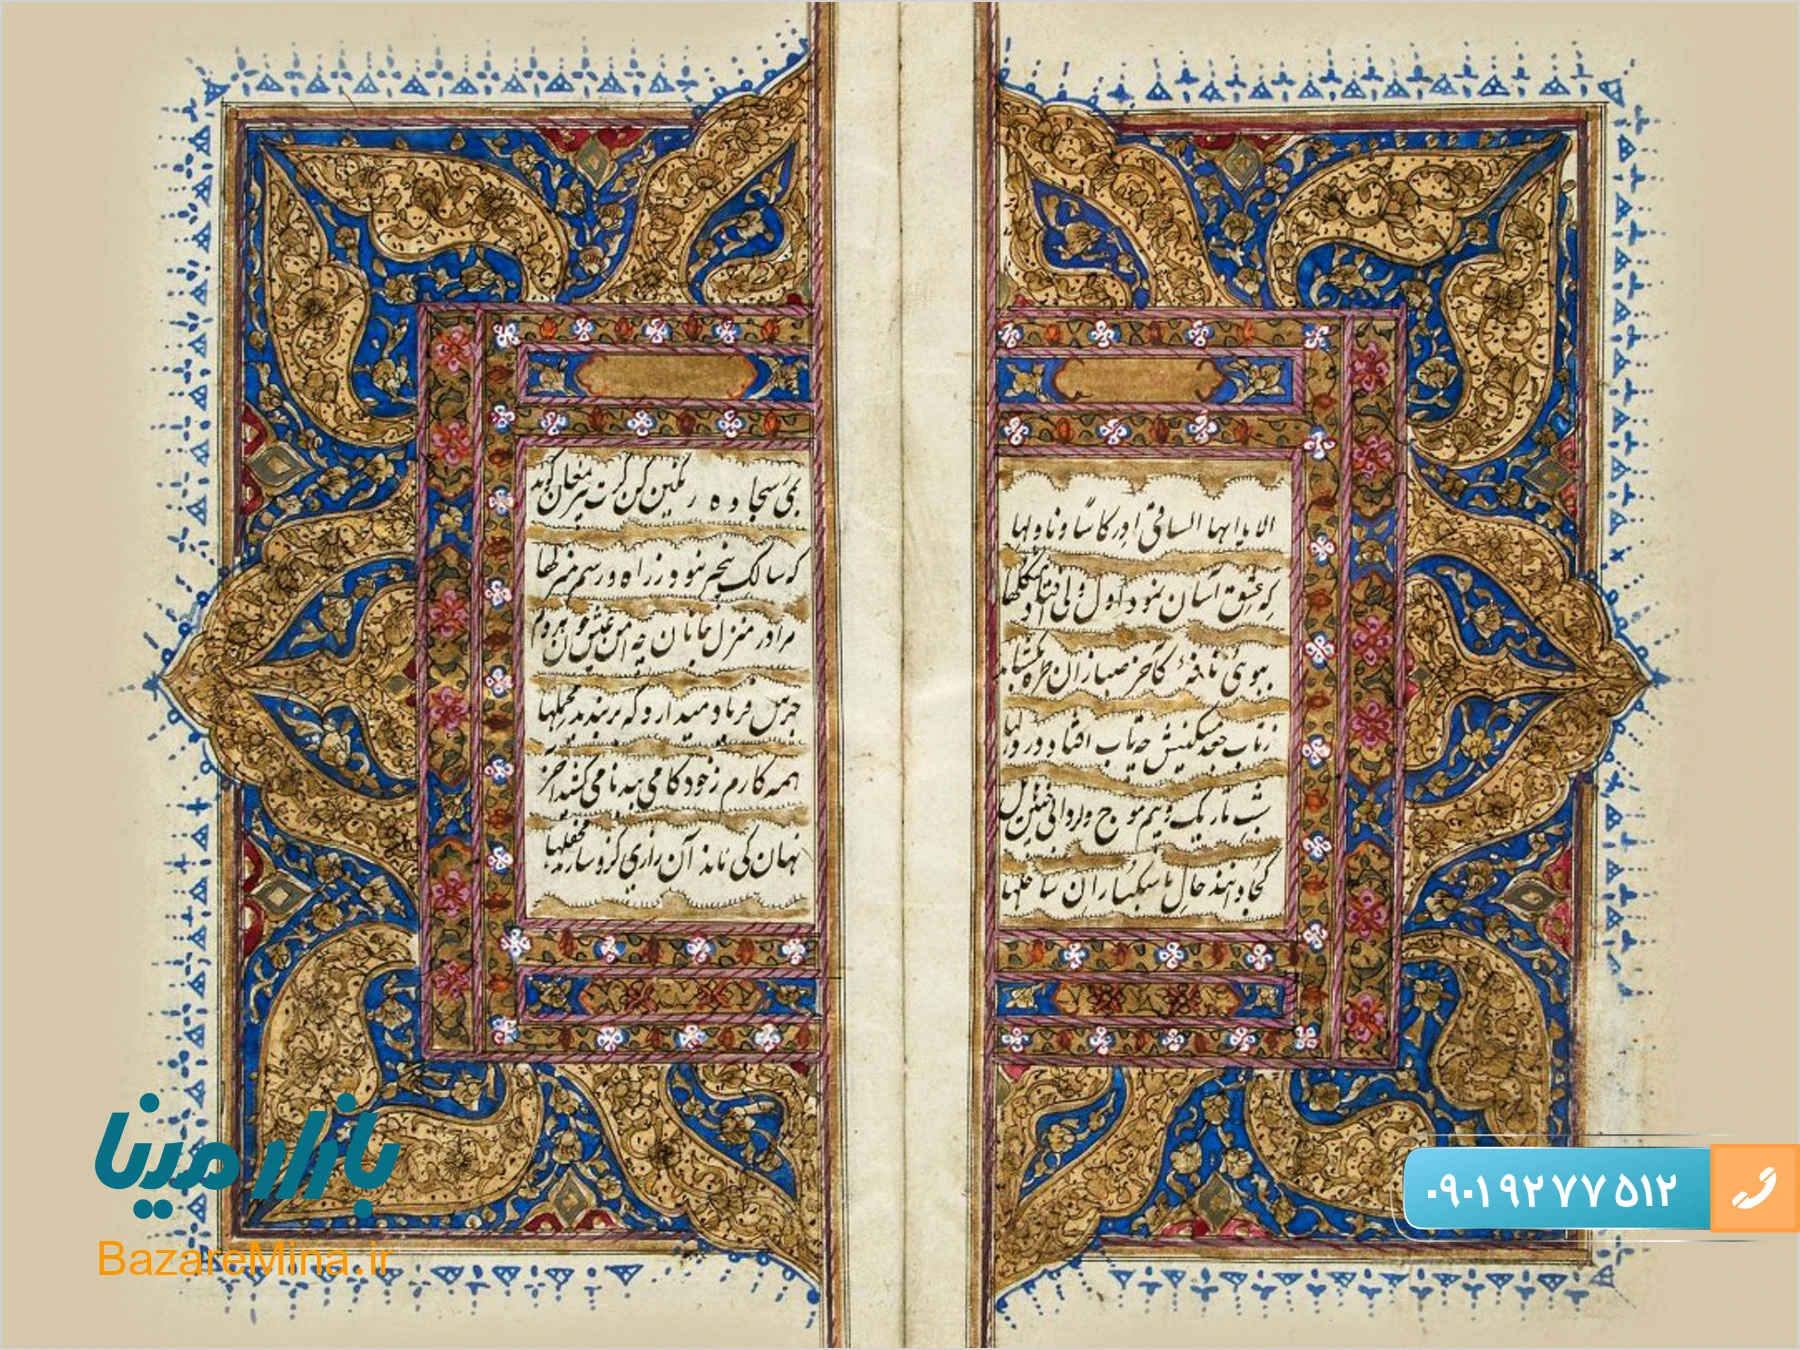 الا یا ایها الساقی ادر کاسا و ناولها
که عشق آسان نمود اول ولی افتاد مشکلها
ببوی نافهٔ کآخر صبا زان طره بگشاید
ز تاب جعد مشکینش چه تاب افتاد در دلها
شب تاریک و بیم موج و گردابی چنین هایل
کجا دانند حال ما سبکباران ساحلها
بمی سجاده رنگین کن گرت پیر مغان گوید
که سالک بیخبر نبود ز راه و رسم منزلها
مرا در منزل جانان چه امن عیش چون هر دم
جرس فریاد میدارد که بربندید محملها
همه کارم ز خود کامی ببدنامی کشید آخر
نهان کی ماند آن رازی کزو سازند محفلها
بازار مینا
BazareMina.ir
۰۹۰۱ ۹۲ ۷۷ ۵۱۲